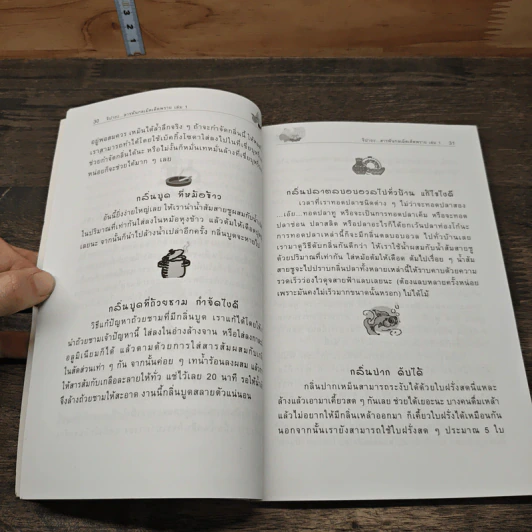 30 จิปาถะ...สารพันเกมเม็ดเด็ดพราย เล่ม 1
อยู่พอสมควร เหม็นได้ล้ำลึกจริง ๆ ถ้าจะกำจัดกลิ่นนี้
เราสามารถทำได้โดยใช้เบ้คกิ้งโซดาใส่ลงไปในที่
ช่วยกำจัดกลิ่นได้นะ หรือไม่งั้นก็หมั่นเทหมั่นล้างที่
หน่อยก็จะช่วยได้มาก ๆ เลย
กลิ่นบูด ที่หม้อข้าว
อันนี้ยิ่งง่ายใหญ่เลย ให้เรานำน้ำส้มสายชูผสมกับน้ำ
ในปริมาณที่เท่ากันใส่ลงในหม้อหุงข้าว แล้วต้มให้เดือด
เลยนะ จากนั้นก็นำไปล้างน้ำเปล่าอีกครั้ง กลิ่นบูดจะหายไป
กลิ่นบูดที่ถ้วยชาม กำจัดไงดี
วิธีแก้ปัญหาถ้วยชามที่มีกลิ่นบูด เราแก้ได้โดย
นำถ้วยชามเจ้าปัญหานี้ ใส่ลงในอ่างล้างจาน หรือใส่
อลูมิเนียมก็ได้ แล้วตามด้วยการใส่สารส้มผสมกับ
ในสัดส่วนเท่า ๆ กัน จากนั้นค่อย ๆ เทน้ำร้อนลงผสม แล้ว
ให้สารส้มกับเกลือละลายให้ทั่ว แช่ไว้เลย 20 นาที รอให้น้ำ
จึงล้างถ้วยชามให้สะอาด งานนี้กลิ่นบูดสลายตัวแน่นอน
จิปาถะ...สารพันเกมเม็ดเด็ดพราย เล่ม 1
กลิ่นปลาตลบอบอวลไปทั่วบ้าน แก้ไขไงดี
เวลาที่เราทอดปลาชนิดต่าง ๆ ไม่ว่าจะทอดปลาสอง
...เอ๊ย...ทอดปลาทู หรือจะเป็นการทอดปลาเค็ม หรือจะทอด
ปลาช่อน ปลาสลิด หรือปลาอะไรก็ได้ยกเว้นปลาท่องโก๋นะ
การทอดปลาเหล่านี้ก็จะมีกลิ่นตลบอบอวล ไปทั่วบ้านเลย
เรามาดูวิธีดับกลิ่นกันดีกว่า ให้เราใช้น้ำผสมกับน้ำส้มสายชู
ด้วยปริมาณที่เท่ากัน ใส่หม้อต้มให้เดือด ต้มไปเรื่อย ๆ น้ำส้ม
สายชูจะไปปราบกลิ่นปลาทั้งหลายเหล่านี้ให้ราบคาบด้วยความ
รวดเร็วว่องไวดุจสายฟ้าแลบเลยนะ (ต้องแลบหลายครั้งหน่อย
เพราะมันคงไม่เร็วมากขนาดนั้นหรอก) ไม่ได้โม้
กลิ่นปาก ดับได้
กลิ่นปากเหม็นสามารถระงับได้ด้วยใบฝรั่งสดนี่แหละ
ล้างแล้วเอามาเคี้ยวสด ๆ กันเลย ช่วยได้เยอะนะ บางคนดื่มเหล้า
แล้วไม่อยากให้มีกลิ่นเหล้าออกมา ก็เคี้ยวใบฝรั่งได้เหมือนกัน
นอกจากนั้นเรายังสามารถใช้ใบฝรั่งสด ๆ ประมาณ 5 ใบ